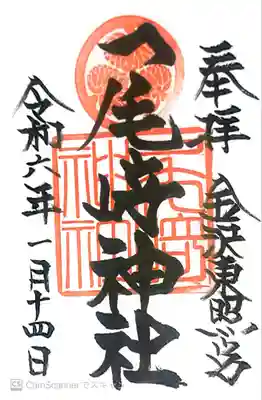 奉拝 金沢東照宮
尾崎神社
令和六年一月十四日
CS CamScanner でスキ